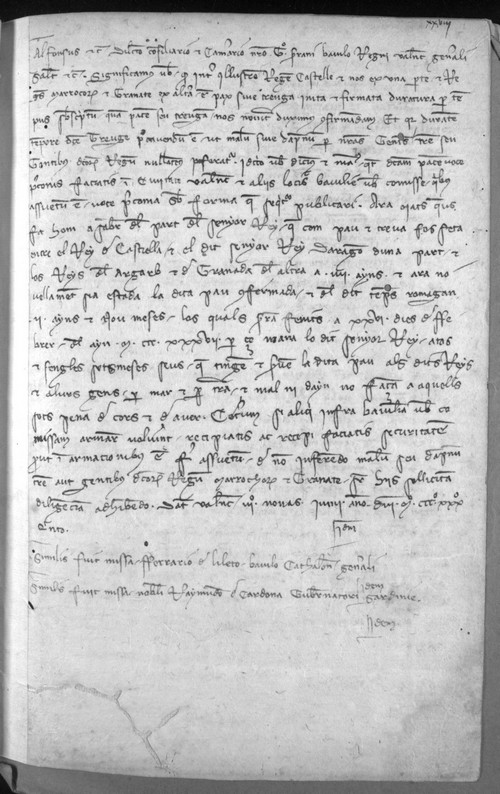 xxviiij
Alfonsus etc Dilecto consiliario et Camerlengo nostro G. serrani baiulo Regni valentie generali
salutem etc. Significamus vobis quod inter illustrem Regem Castelle et nos ex una parte et Re
ges Marrochorum et Granate ex altera est pax sive treuga inita et firmata duratura per tem
pus subscriptum quam pacem seu treugam nos noviter duximus confirmandam Et quia durante
tempore dicte treuge malum sive dampnum per nostras Gentes terre seu
Gentibus dictorum Regum nullatenus inferatur Ideo vobis dicimus et mandamus quatenus dictam pacem voce
preconis faciatis in Civitate valentie et aliis locis baiulie vobis comisse quibus
assuetum est voce preconia sub forma que sequitur publicari. Ara oiats queus
fa hom a saber del part del senyor Rey que com pau e treva fos feta
entre el Rey de Castella e el dit senyor Rey Darago duna part e
los Reys del Algarb e de Granada del altra a iiii ayns e ara no
vellament sia estada la dita pau confermada e del dit temps romangan
ii ayns e nou meses los quals seran fenits a xxvi dies de ffe
brer del ayn M CCC xxxvii per ço mana lo dit senyor Rey a tots
e sengles sotsmeses seus que tinguen e serven la dita pau als dits Reys
e a lurs gens per mar e per terra e mal ni dayn no facen a aquells
sots pena de cors e de aver. Ceterum si aliqui infra baiuliam vobis co
missam armare voluerint recipiatis ac recipi faciatis securitatem
prout in armationibus est fieri assuetum de non inferendo malum seu dampnum
terre aut gentibus dictorum Regum Marrochorum et Granate super hiis sollicitam
diligenciam adhibendo. Datum valentie iii nonas Iunii anno domini M CCC xxx
quarto.
Idem
Similis fuit missa fferrario de lileto baiulo Cathalonie generali
Idem
Similis fuit missa nobili Raymundo de Cardona Gubernatori Sardinie.
Idem